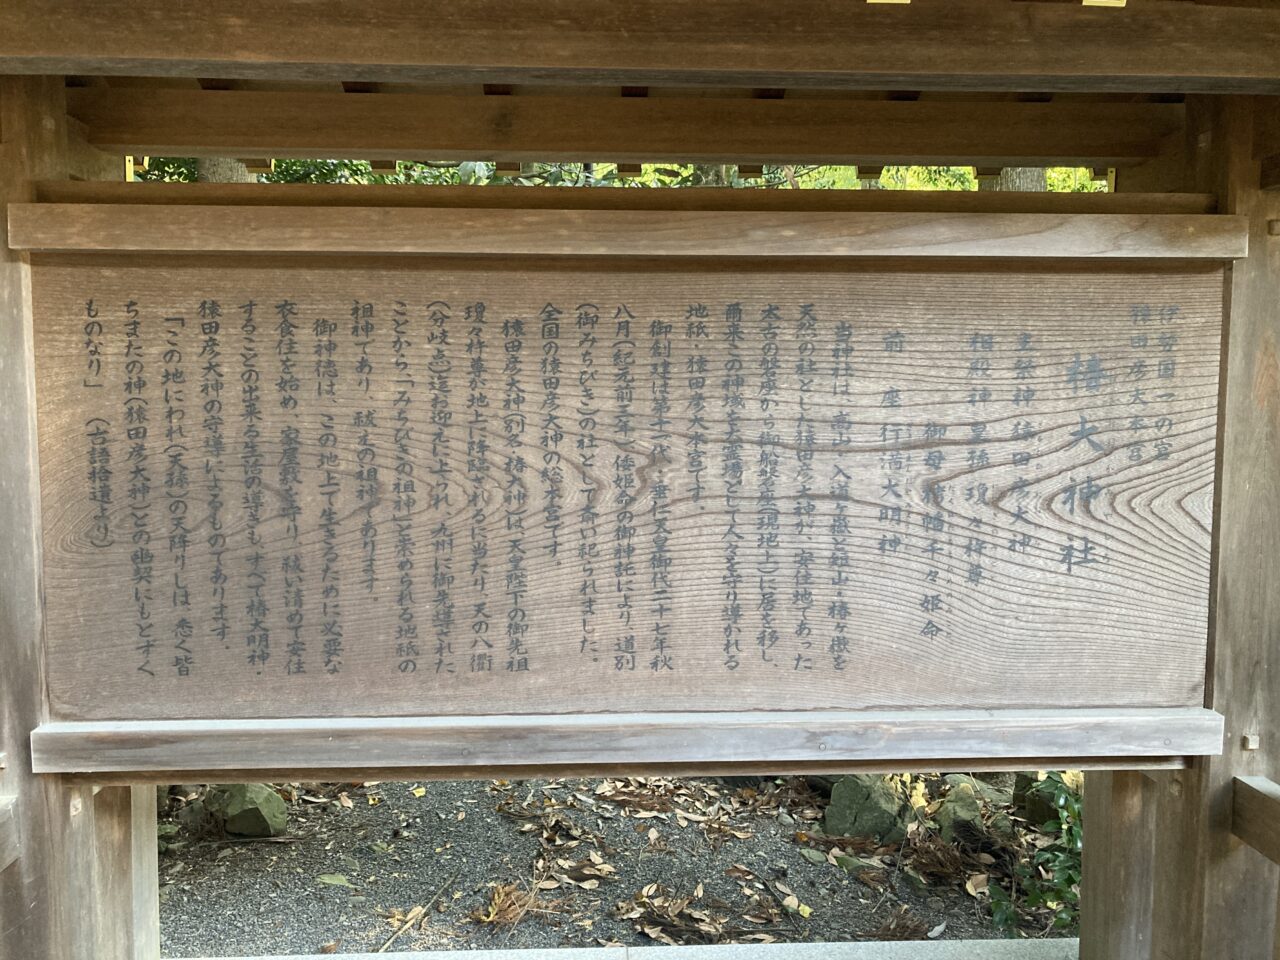 伊勢国一の宮
猿田彦大本宮
椿大神社
主祭神 猿田彦大神
相殿神 皇孫瓊々杵尊
御母栲幡千々姫命
前座 行満大明神
当神社は、高山・入道ヶ嶽と短山・椿ヶ嶽を
天然の社とした猿田彦大神が、安住地であった
太古の磐座から御船磐座(現地上)に居を移し、
爾来この神域を大霊場として人々を守り導かれる
地祇・猿田彦大本宮です。
御創建は第十一代・垂仁天皇御代二十七年秋
八月(紀元前三年)、倭姫命の御神託により、道別
(御みちびき)の社として斎い祀られました。
全国の猿田彦大神の総本宮です。
猿田彦大神(別名・椿大神)は、天皇陛下の御先祖
瓊々杵尊が地上に降臨されるに当たり、天の八衢
(分岐点)迄お迎えに上られ、九州に御先導された
ことから、「みちびきの祖神」と崇められる地祇の
祖神であり、祓えの祖神であります。
御神徳は、この地上で生きるために必要な
衣食住を始め、家屋敷を守り、祓い清めて安住
することの出来る生活の導きも、すべて椿大明神・
猿田彦大神の守導によるものであります。
「この地にわれ(天孫)の天降りしは、悉く皆
ちまたの神(猿田彦大神)との幽契にもとずく
ものなり」 (古語拾遺より)